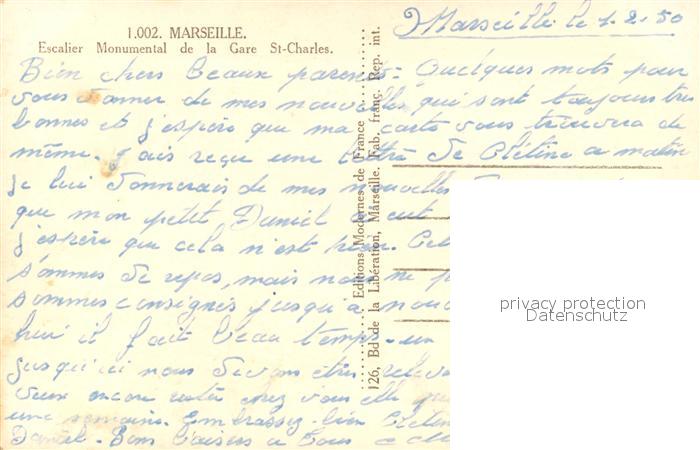 1.002. MARSEILLE.
Escalier Monumental de la Gare St-Charles.
Marseille le 1.2.50
Bien chers beaux parents. Quelques mots pour
vous donner de mes nouvelles qui sont toujours très
bonnes et j'espère que ma carte vous trouvera de
même. J'ais reçue une lettre de Clétine ce matin
je lui donnerais de mes nouvelles
que mon petit Daniel
j'espère que cela n'est rien.
sommes de repos, mais nous ne
sommes consignés jusqu'à
hui il fait beau temps. un
jusqu'ici nous devons être
veux encore rester chez vous elle
une semaine. Embrassez-bien
Daniel. Bons baisers à tous
Editions Modernes de France
126, Bd de la Libération, Marseille. Fab. franç. Rep. int.
privacy protection
Datenschutz